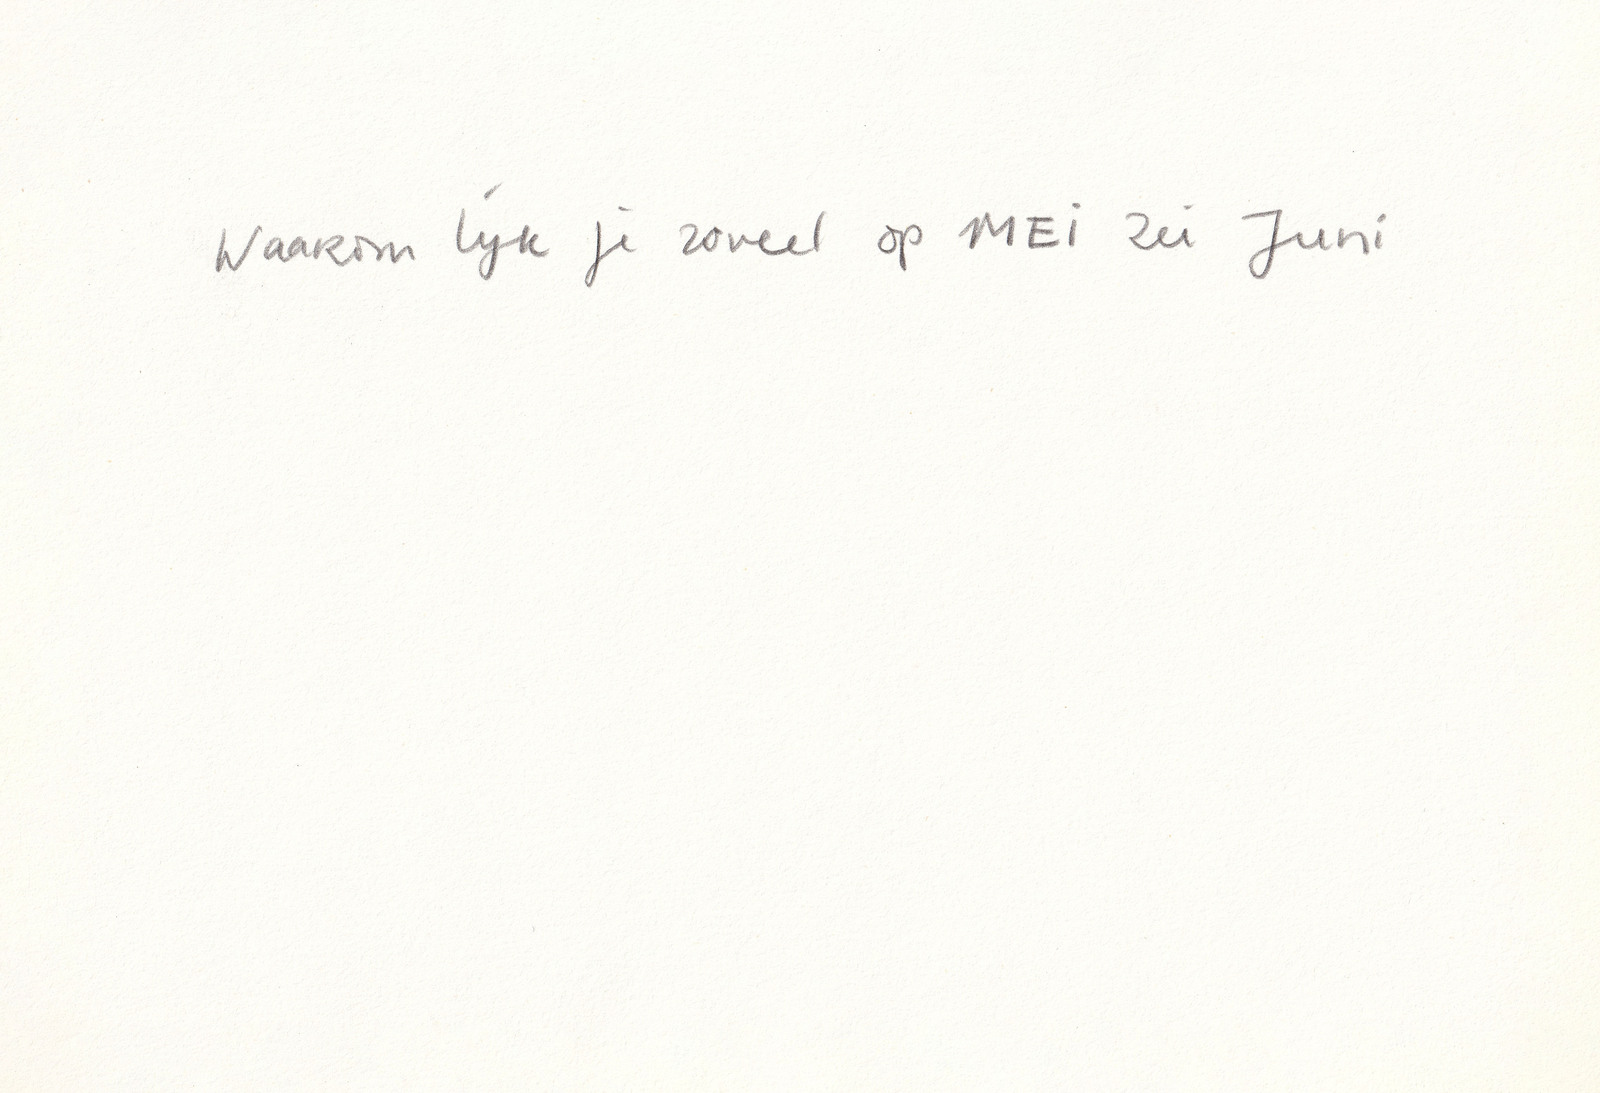 Waarom lijk je zoveel op MEi zei Juni